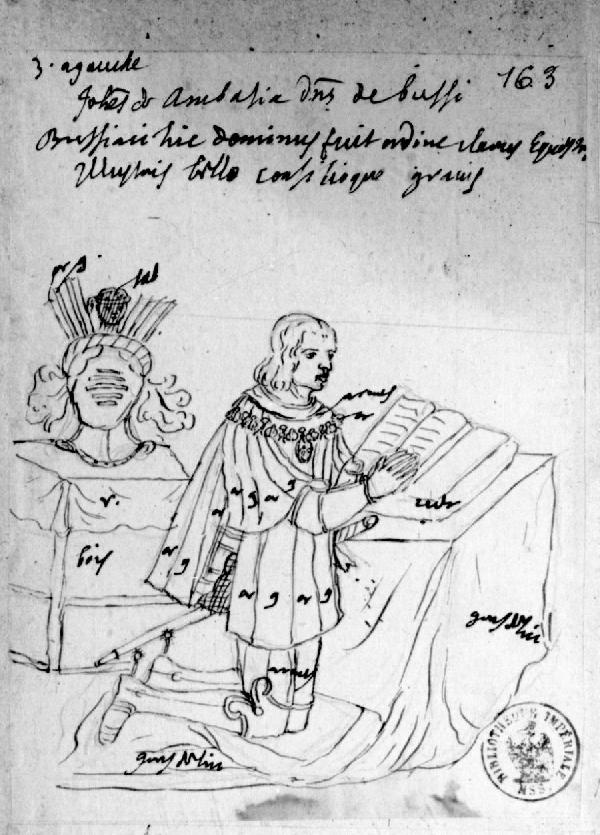 3. agauche
163
Johes de Ambasia dns de bussi
Bussiaci hic dominus fuit ordine clarus Equestri
Illustris bello consilioque gravis
or g
sab
armes
or
v.
bois
or g or g
or g
or g or g
cuir
armes
BIBLIOTHEQUE IMPÉRIALE
MSS.